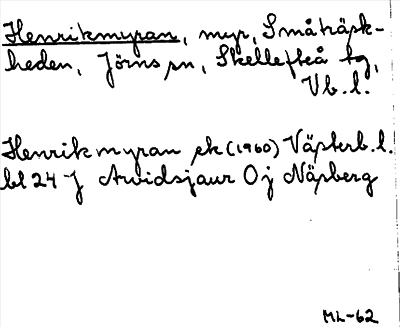 Henrikmyran, myr, Småträsk-
heden, Jörns sn, Skellefteå tg,
Vb. l.
Henrikmyran ek (1960) Västerb. l.
bl 24 J Arvidsjaur 0j Näsberg
ML-62